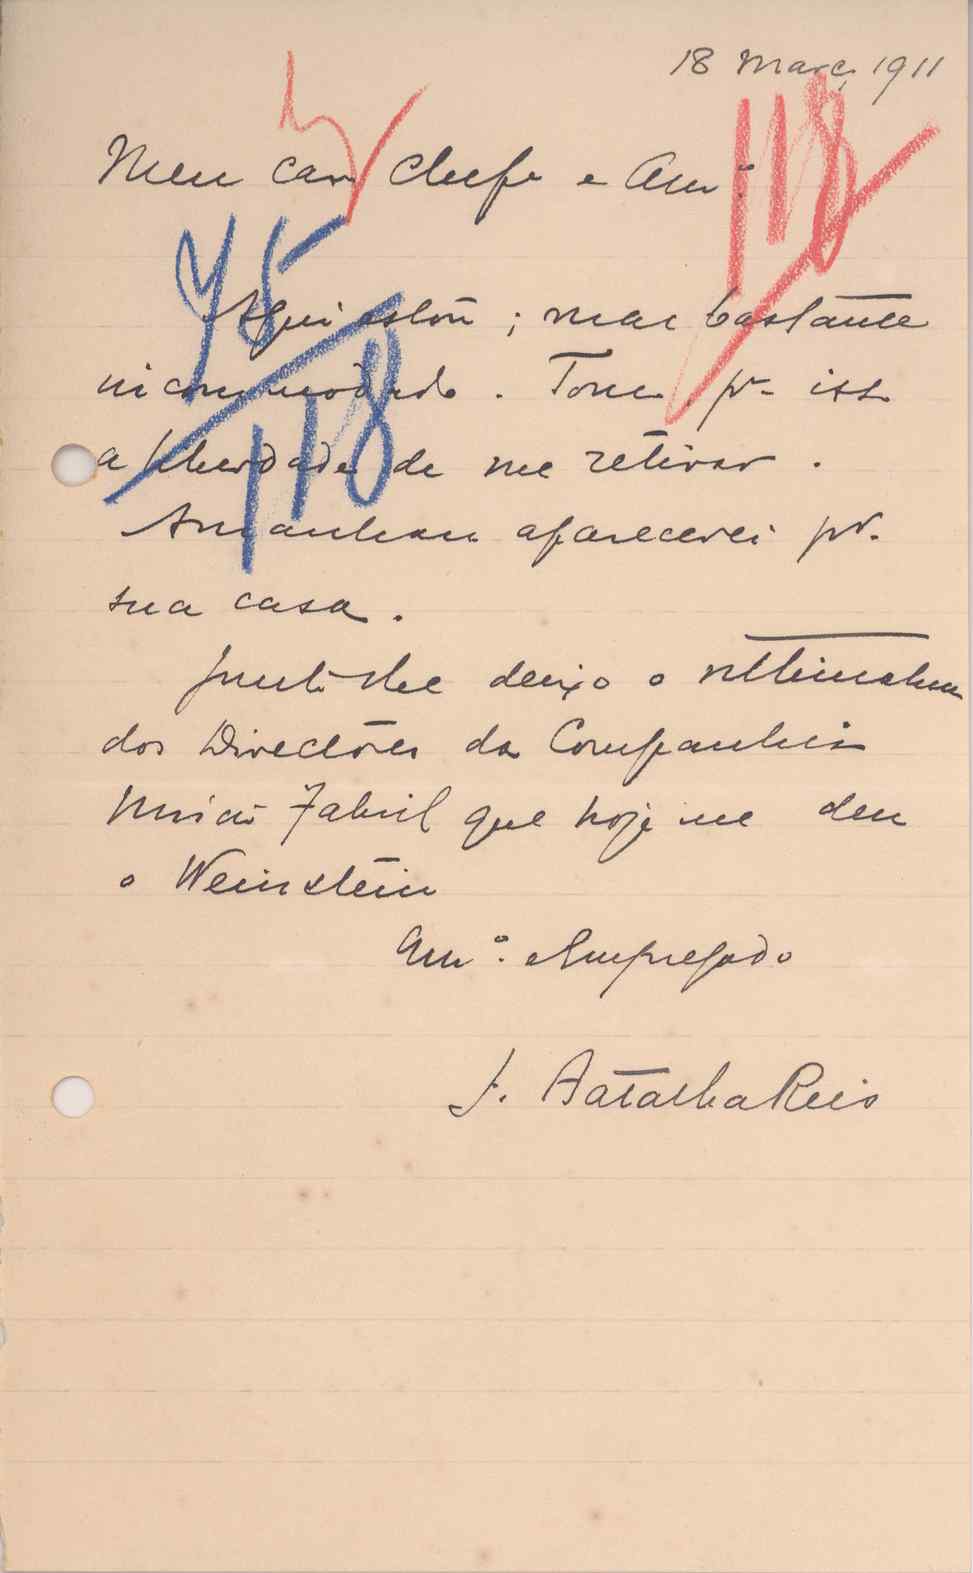 18 Março 1911
5
118
Meu caro Chefe e Am.º
45
118
Aqui estou ; mas bastante
incommodado . Tomo pr isso
a liberdade de me retirar .
Amanhan aparecerei pr.
sua casa .
Junto lhe deixo o ultimatum
dos Directores da Companhia
União Fabril que hoje me deu
o Weinstein
Am.º e Empregado
J. Batalha Reis